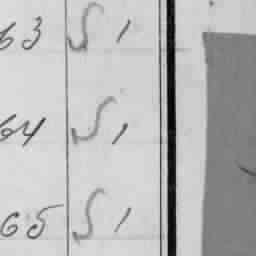 63 S 1
64 S 1
65 S 1